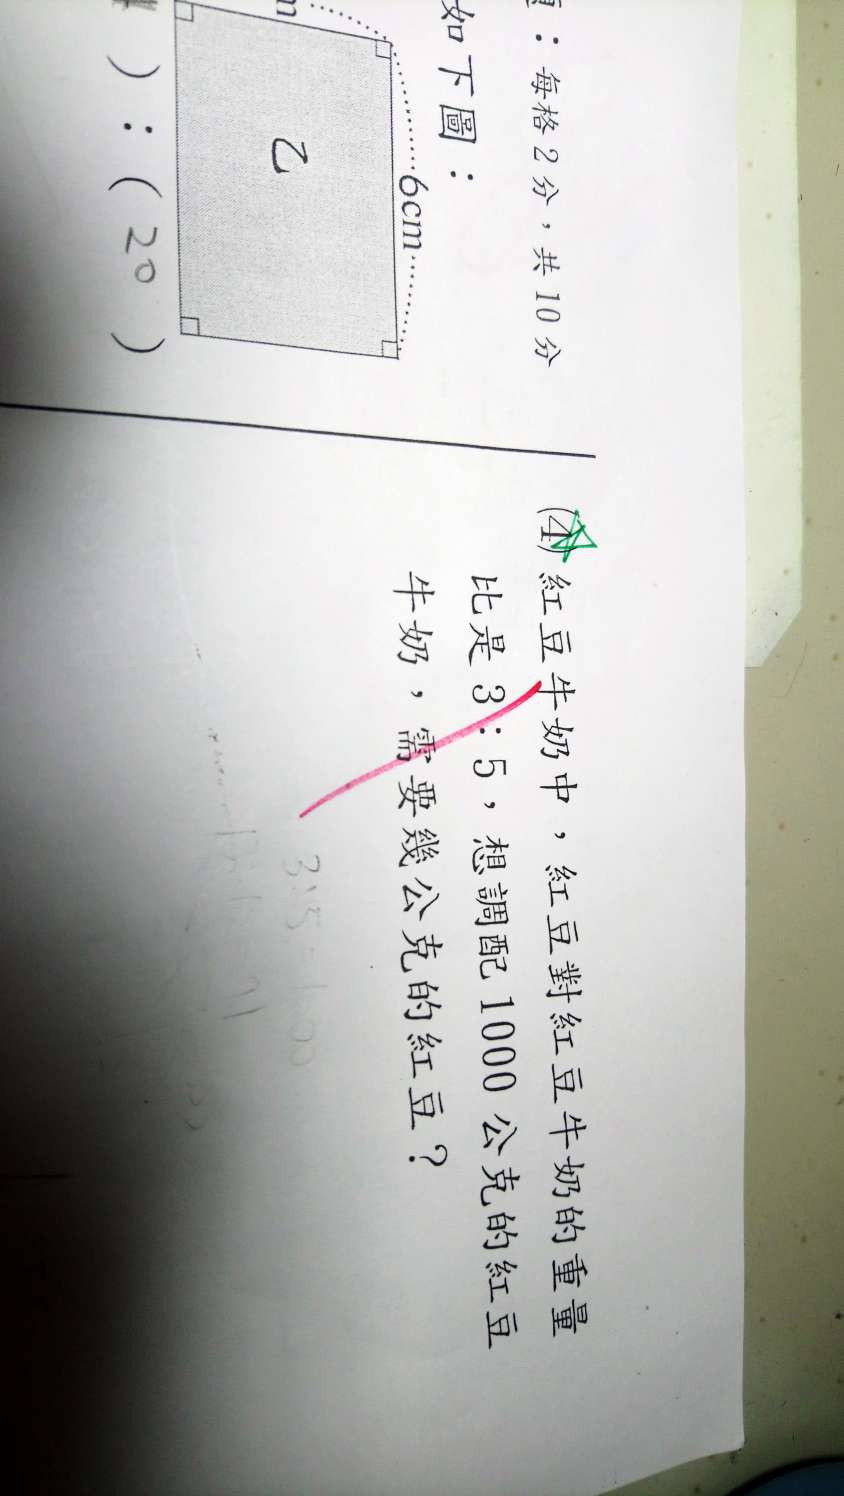 ：每格2分，共10分
如下圖：
6cm
乙
）：（20）
(4)紅豆牛奶中，紅豆對紅豆牛奶的重量
比是3：5，想調配1000公克的紅豆
牛奶，需要幾公克的紅豆？